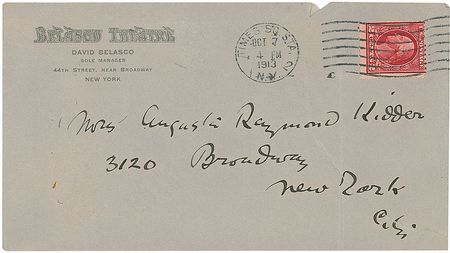 BELASCO THEATRE
DAVID BELASCO
SOLE MANAGER
44TH STREET, NEAR BROADWAY
NEW YORK
TIMES SQ. STA.
OCT 7
4 PM
1913
N.Y.
2
Mrs Augusta Raymond Kidder
3120 Broadway
New York
City